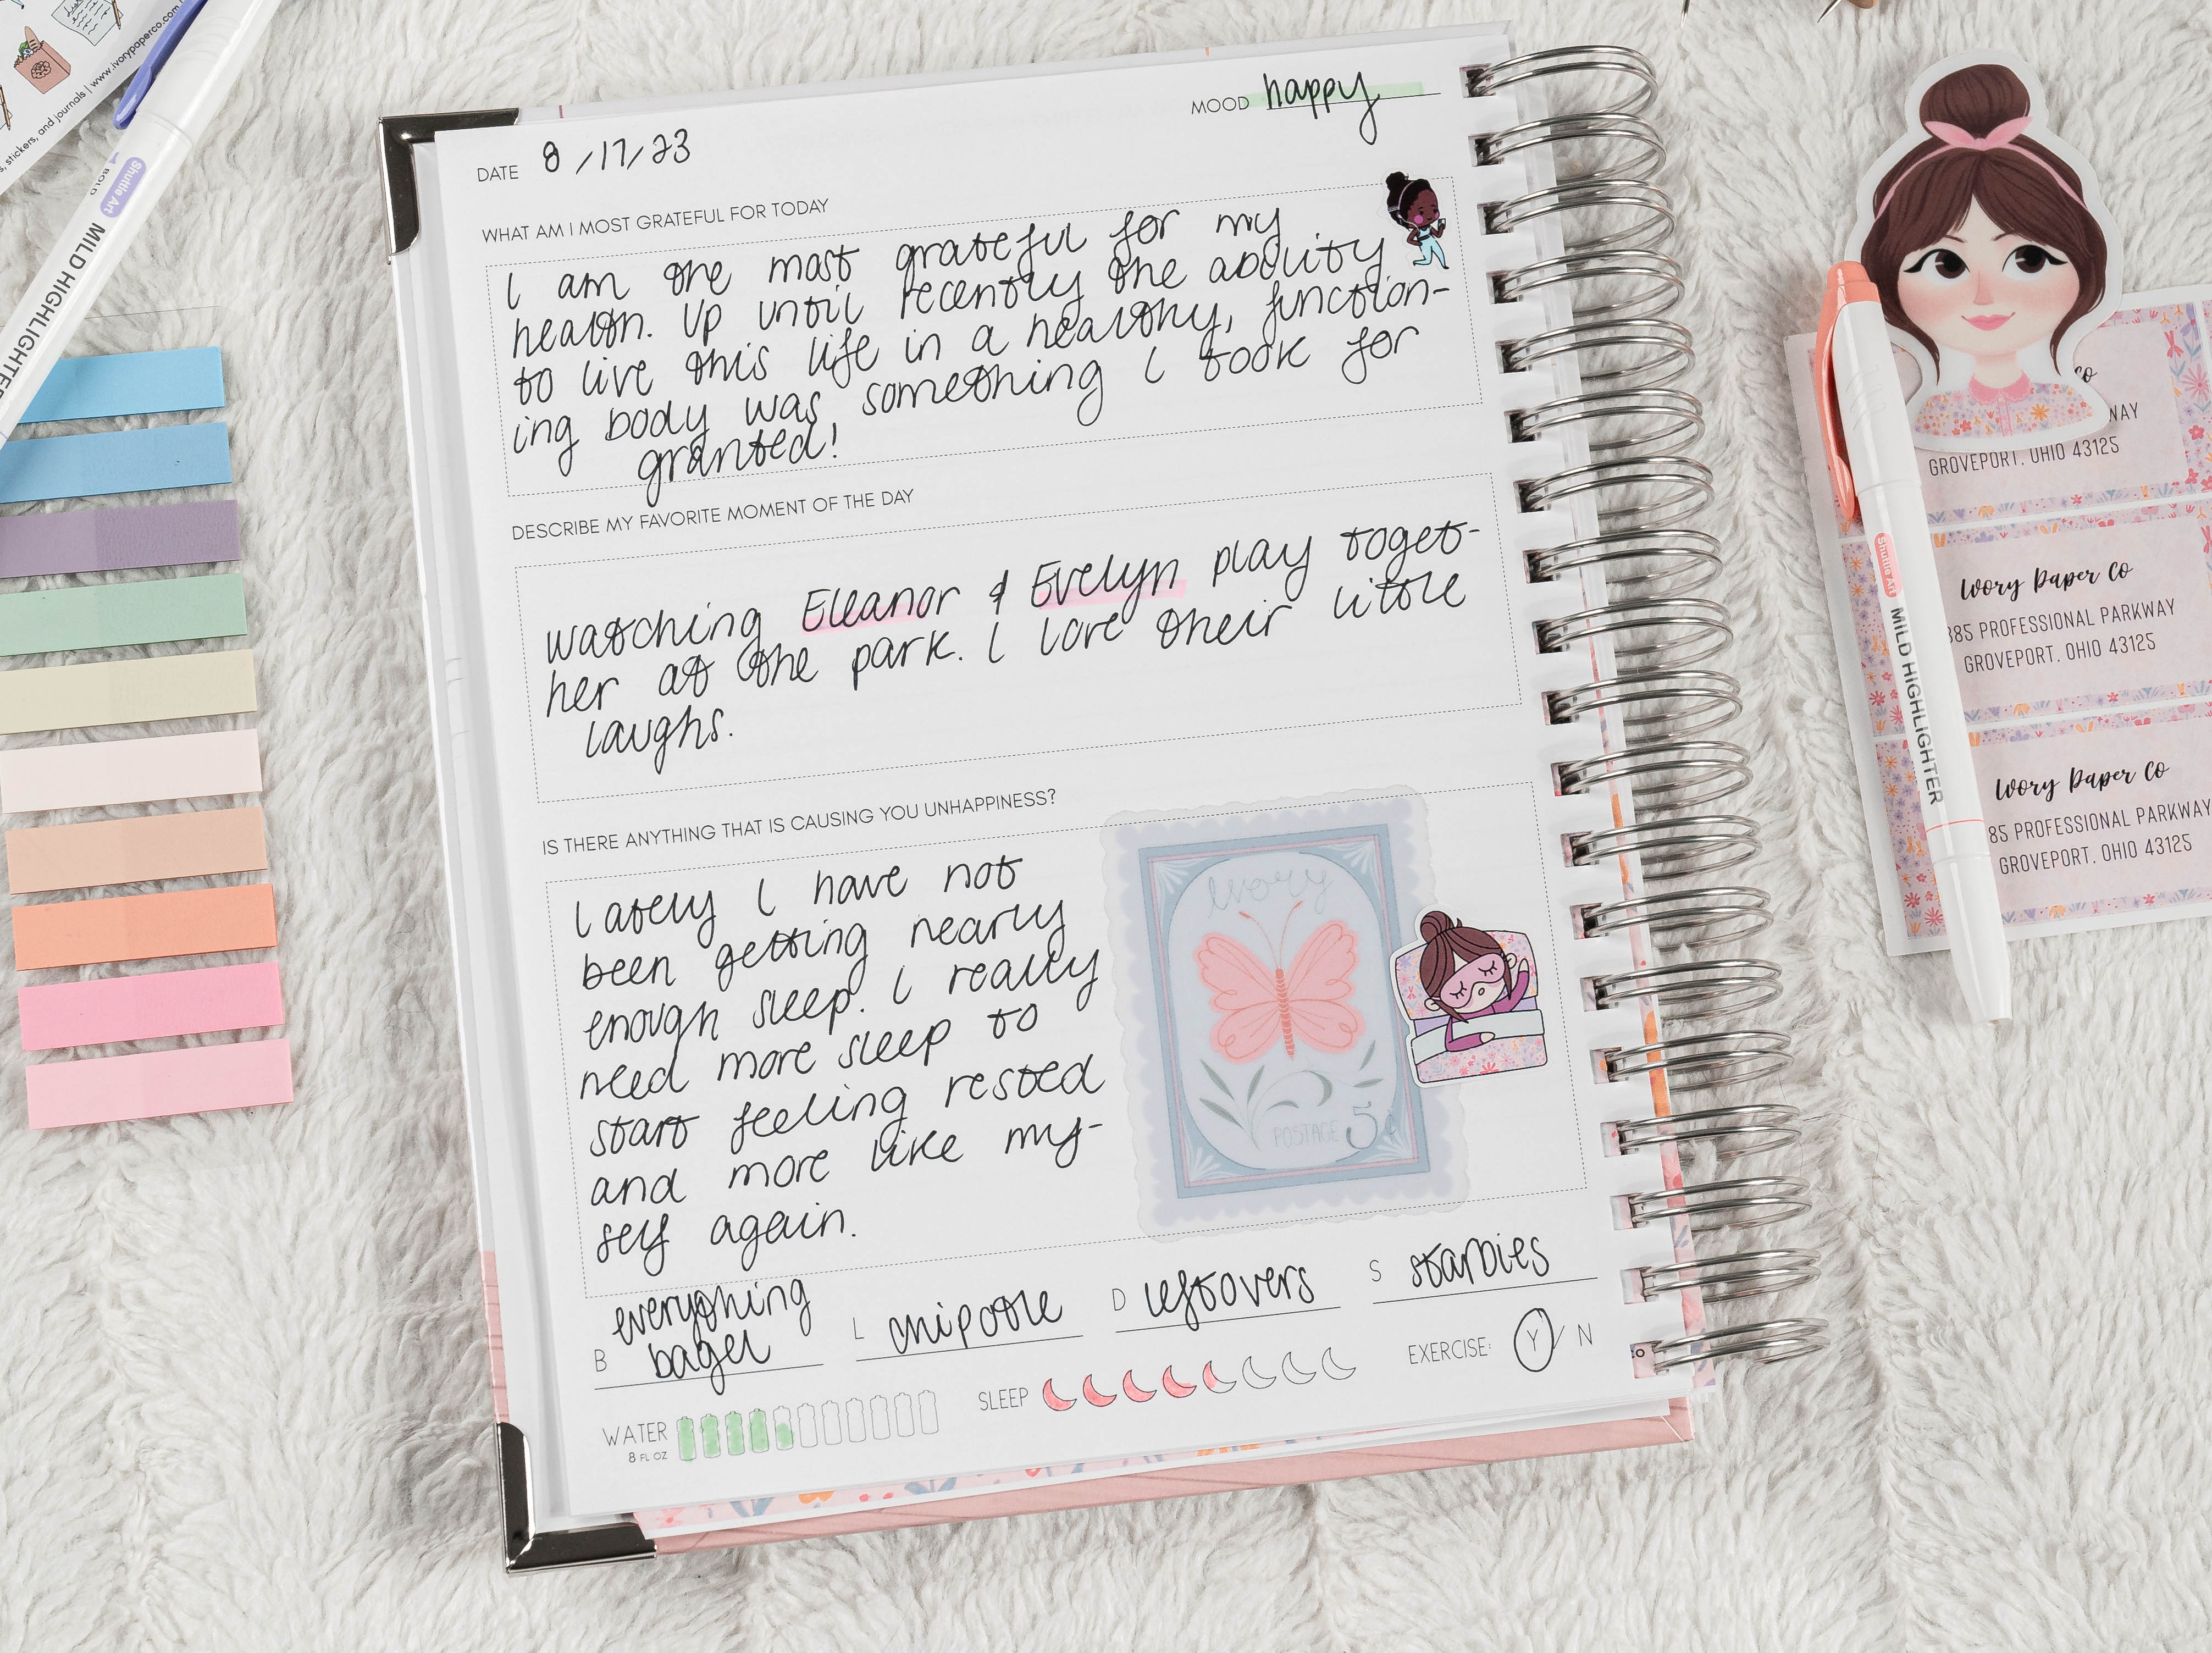 s, stickers, and journals | www.ivorypaperco.com
Shuttle Art
BOLD
MILD HIGHLIGHTE
MOOD happy
DATE 8/17/23
WHAT AM I MOST GRATEFUL FOR TODAY
I am the most grateful for my
health. Up until recently the ability
to live this life in a healthy, function-
ing body was something I took for
granted!
DESCRIBE MY FAVORITE MOMENT OF THE DAY
watching Eleanor & Evelyn play toget-
her at the park. I love their little
laughs.
IS THERE ANYTHING THAT IS CAUSING YOU UNHAPPINESS?
Lately I have not
been getting nearly
enough sleep. I really
need more sleep to
start feeling rested
and more like my-
self again.
Ivory
POSTAGE 5¢
B everything
bagel
L chipotle
D leftovers
S starbies
WATER
8 FL OZ
SLEEP
EXERCISE: Y / N
co
CO
WAY
GROVEPORT, OHIO 43125
Ivory Paper Co
385 PROFESSIONAL PARKWAY
GROVEPORT, OHIO 43125
Ivory Paper Co
85 PROFESSIONAL PARKWAY
GROVEPORT, OHIO 43125
Shuttle Art
MILD HIGHLIGHTER